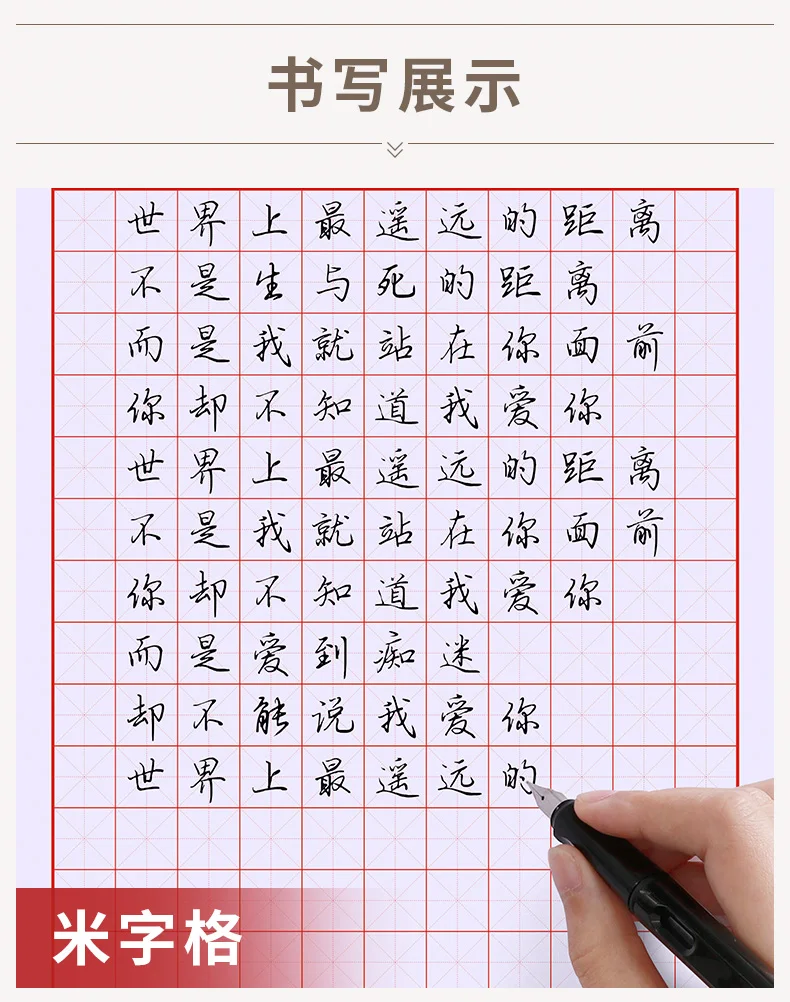 书写展示
世界上最遥远的距离
不是生与死的距离
而是我就站在你面前
你却不知道我爱你
世界上最遥远的距离
不是我就站在你面前
你却不知道我爱你
而是爱到痴迷
却不能说我爱你
世界上最遥远的
米字格